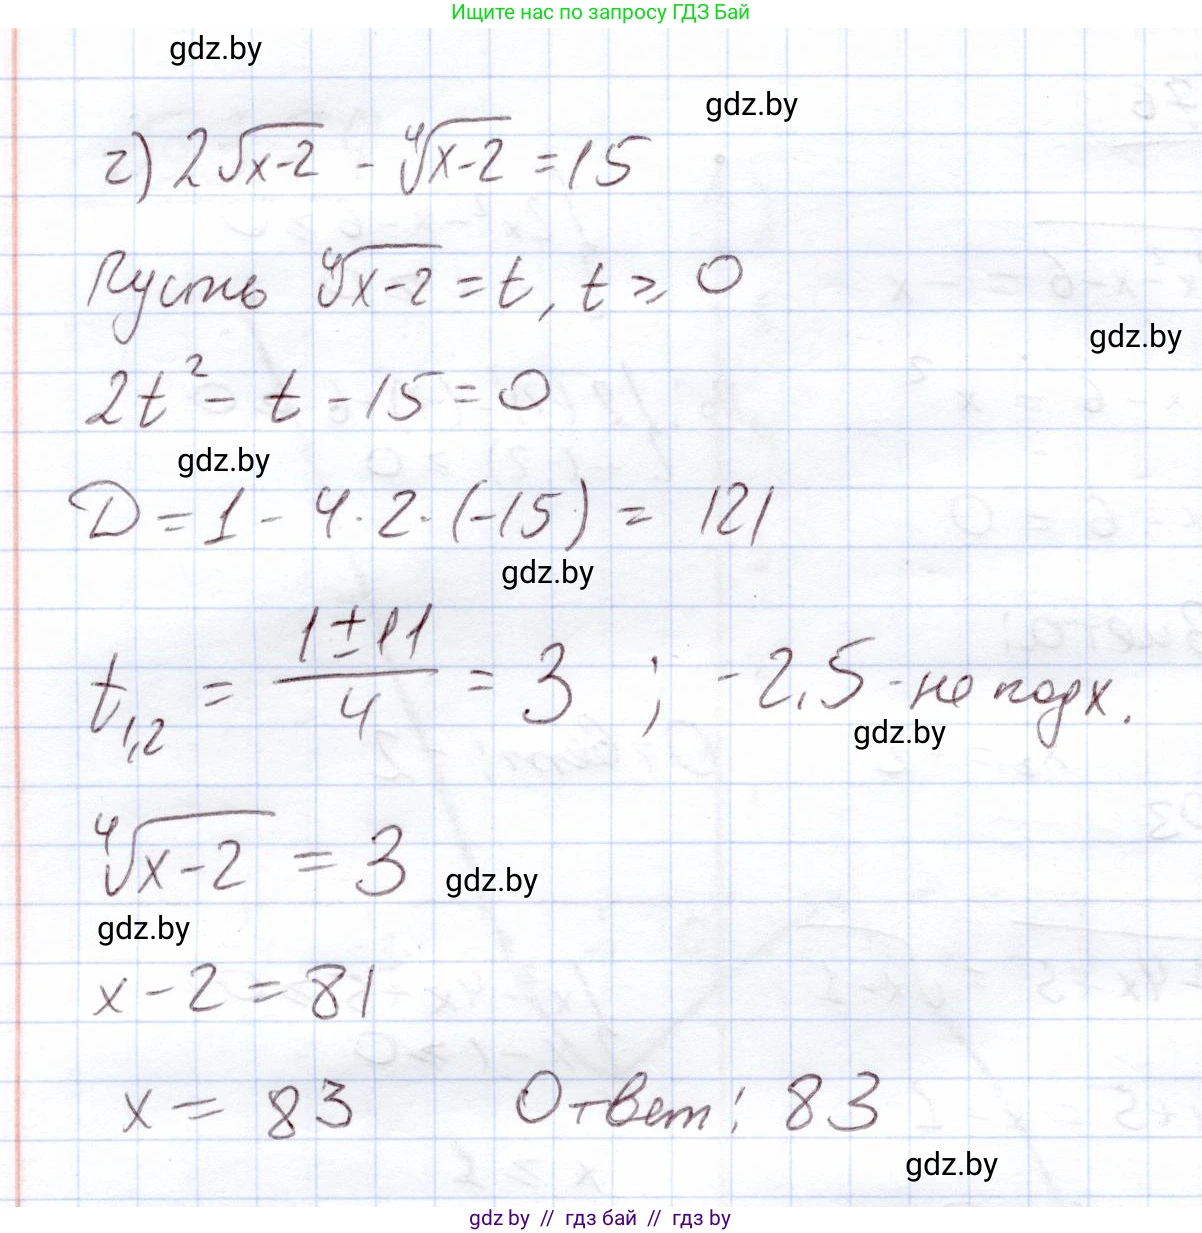 Ищите нас по запросу ГДЗ Бай
gdz.by
gdz.by
г) 2√x-2 - ⁴√x-2 = 15
Пусть ⁴√x-2 = t, t ≥ 0
gdz.by
2t² - t - 15 = 0
gdz.by
D = 1 - 4·2·(-15) = 121
gdz.by
t₁,₂ = (1 ± 11)/4 = 3 ; -2,5 - не подх.
gdz.by
⁴√x-2 = 3
gdz.by
gdz.by
x - 2 = 81
x = 83 Ответ: 83
gdz.by
gdz by // гдз бай // гдз by